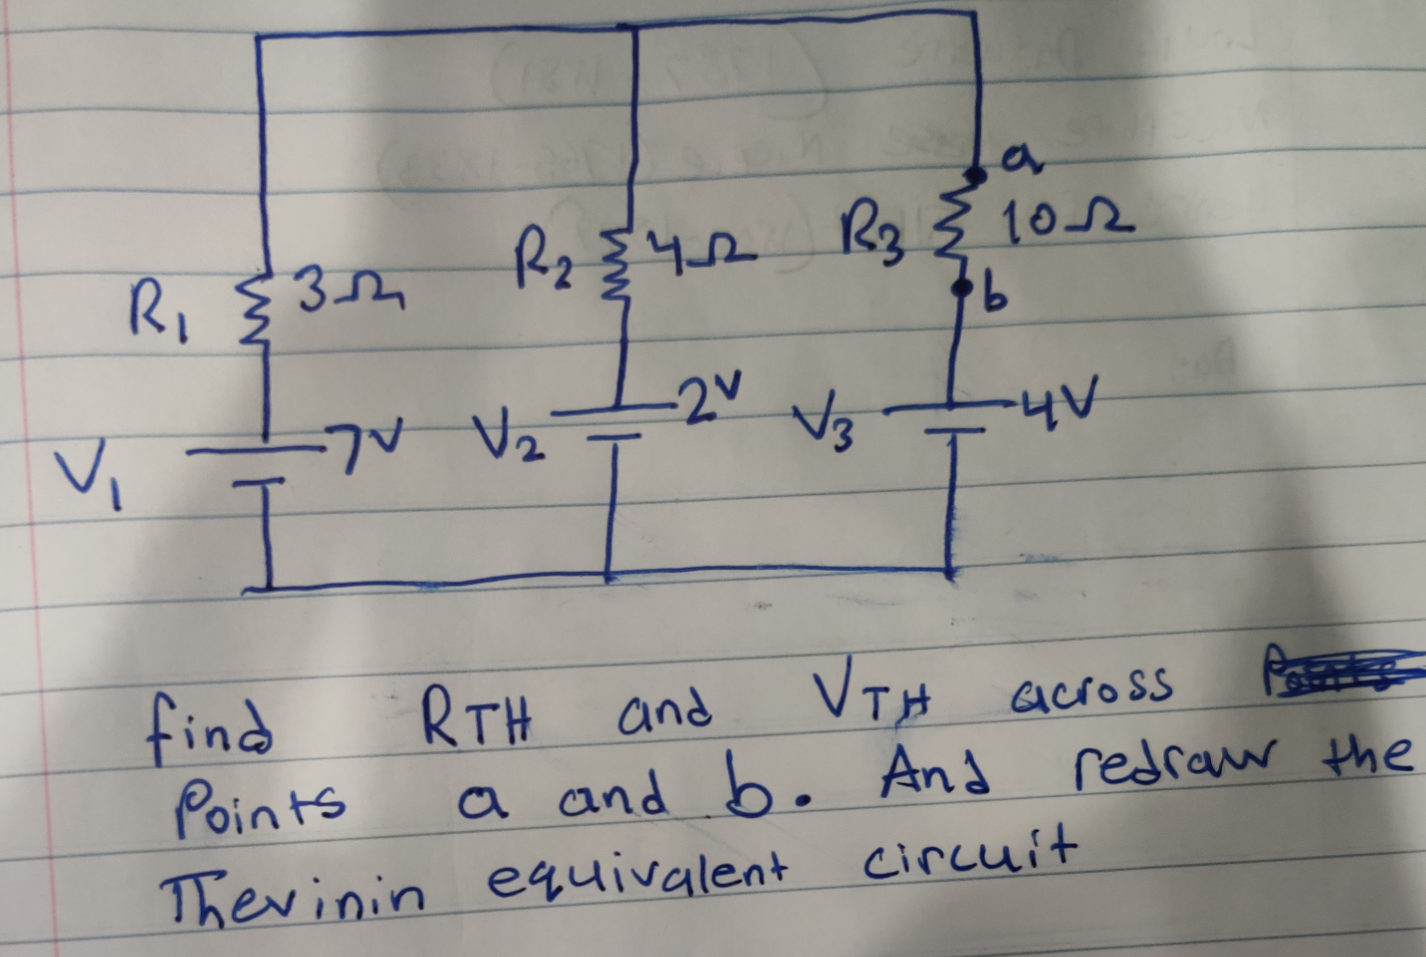 a
R3 10Ω
b
R2 4Ω
R1 3Ω
V1 7V
V2 2V
V3 4V
find RTH and VTH across
Points a and b. And redraw the
Thevinin equivalent circuit